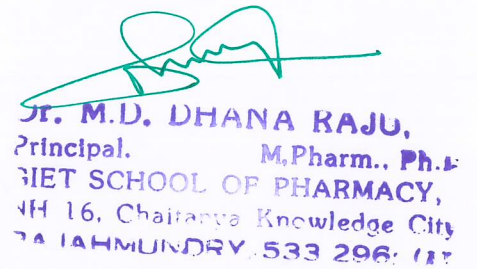 Dr. M.D. DHANA RAJU,
Principal. M.Pharm.. Ph.D
GIET SCHOOL OF PHARMACY,
NH 16, Chaitanya Knowledge City
RAJAHMUNDRY 533 296: